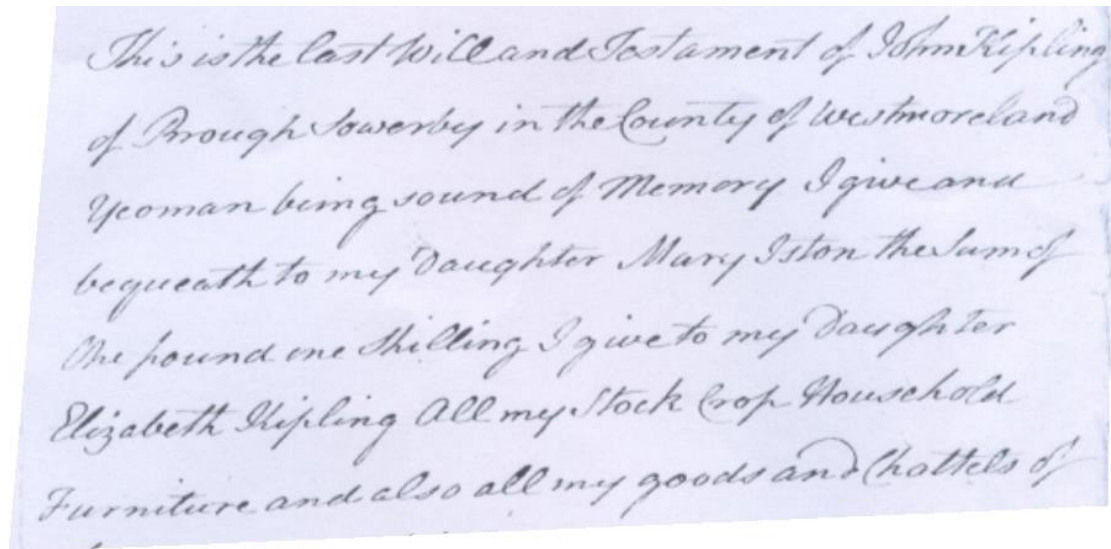 This is the last Will and Testament of John Kipling
of Brough Sowerby in the County of Westmoreland
Yeoman being sound of Memory I give and
bequeath to my Daughter Mary Iston the Sum of
One pound one Shilling I give to my Daughter
Elizabeth Kipling All my Stock Crop Household
Furniture and also all my goods and Chattels of